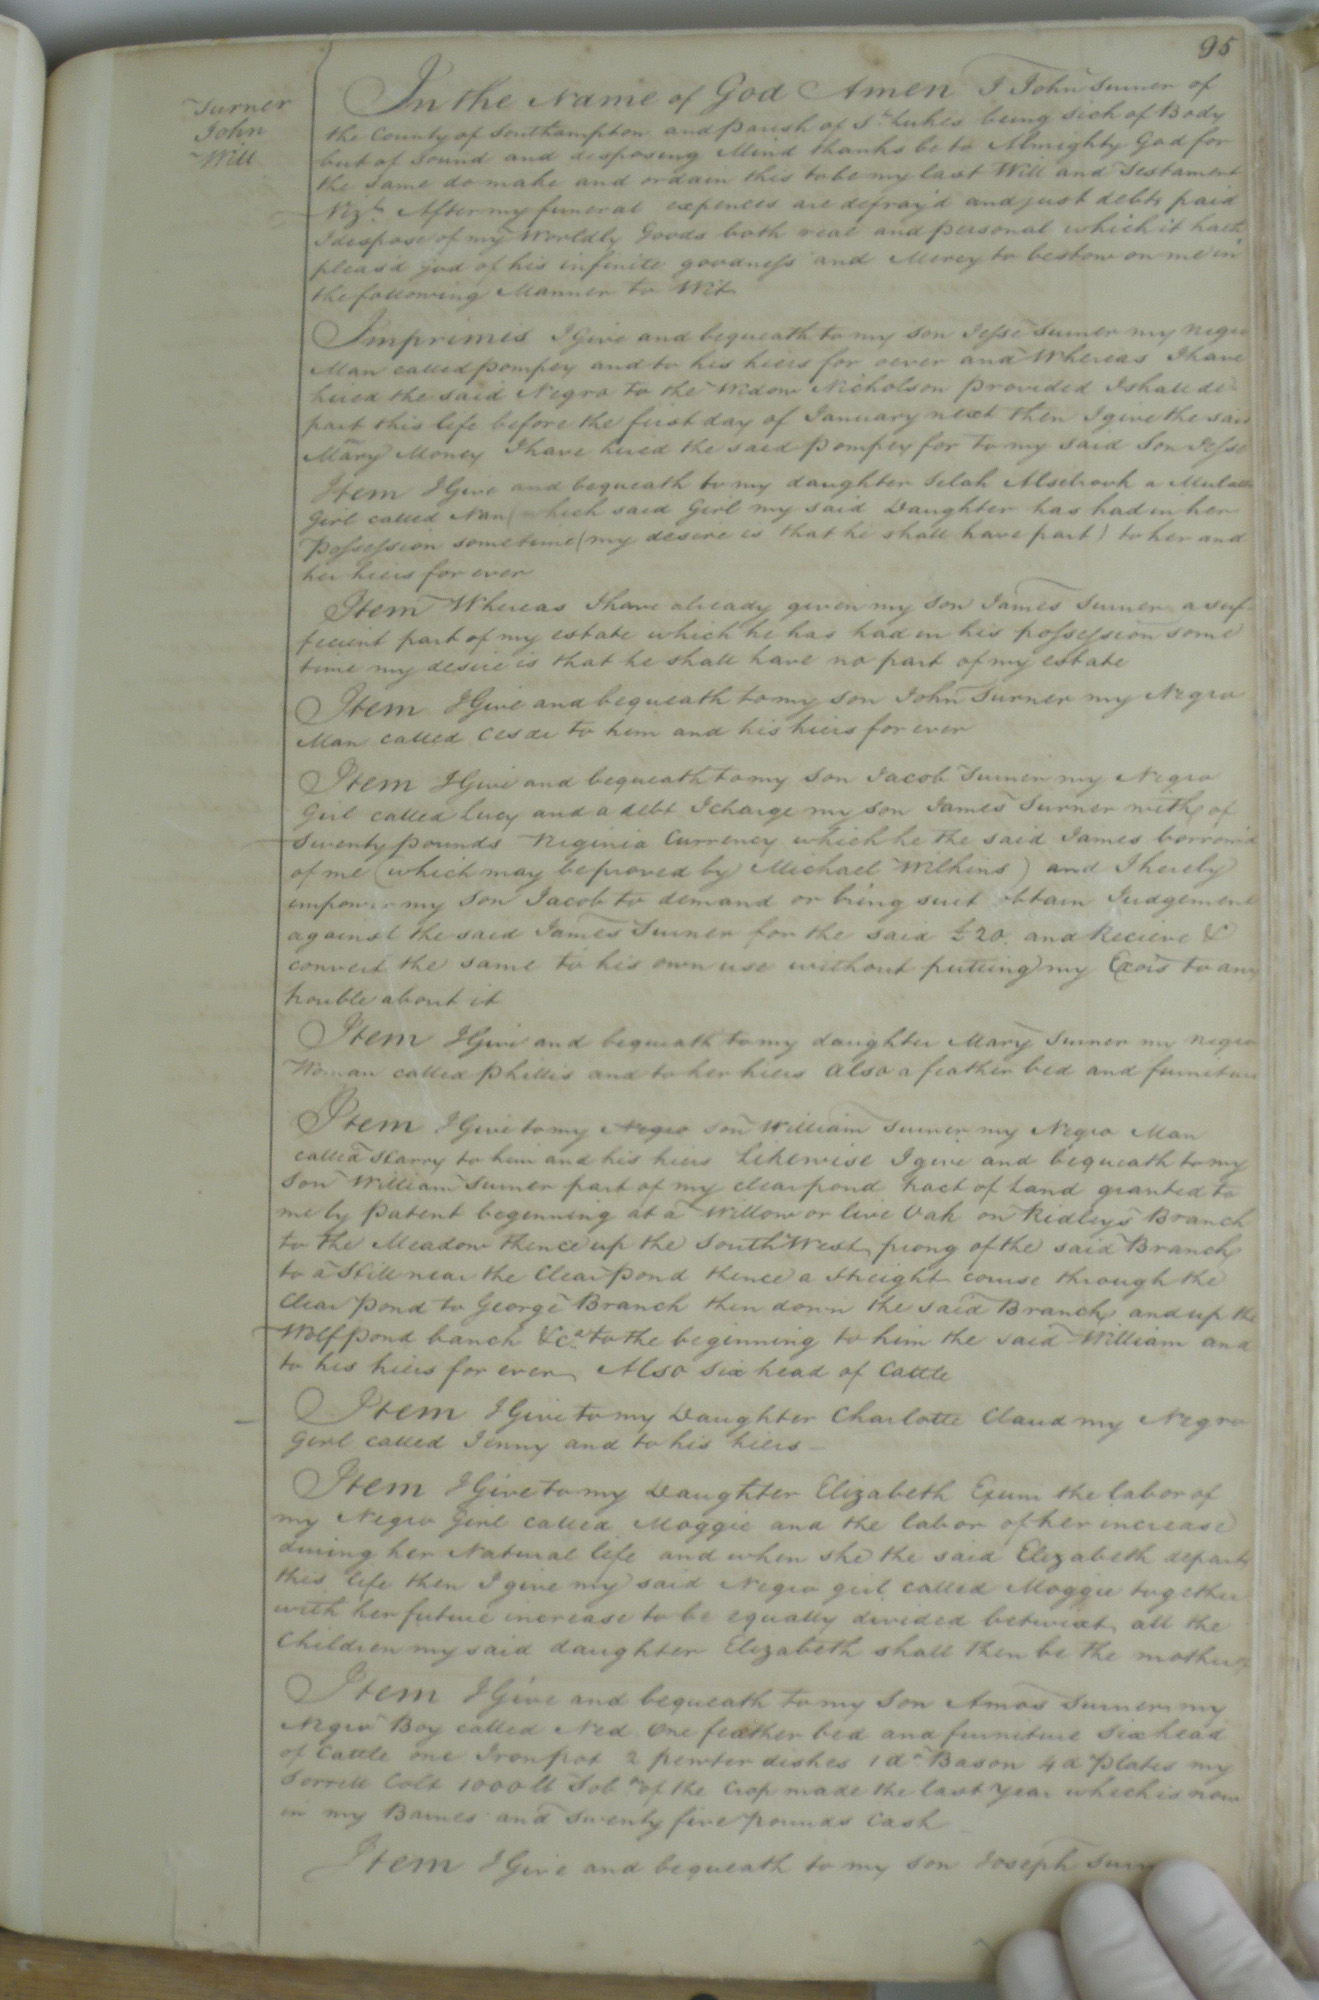 95
Turner
John
Will
In the Name of God Amen I John Turner of
the County of Southampton and parish of St. Lukes being Sick of Body
but of Sound and disposing Mind thanks be to Almighty God for
the same do make and ordain this to be my last Will and Testament
Vizt. After my funeral expences are defray'd and just debts paid
I dispose of my Worldly Goods both real and personal which it hath
pleas'd god of his infinite goodness and Mercy to bestow on me in
the following Manner to Wit
Imprimis I Give and bequeath to my son Jesse Turner my negro
Man called pompey and to his hiers for oever and Whereas I have
hired the said Negro to the Widow Nicholson provided I shall de
part this life before the first day of January next then I give the said
Mary Money I have hired the said Pompey for to my said Son Jesse
Item I Give and bequeath to my daughter Selah Alsebrook a Mulatto
Girl called Nan (which said Girl my said Daughter has had in her
Possession sometime (my desire is that he shall have part) to her and
her hiers for ever
Item Whereas I have already given my Son James Turner a suf-
ficient part of my estate which he has had in his possession some
time my desire is that he shall have no part of my estate
Item I Give and bequeath to my son John Turner my Negro
Man called to him and his hiers for ever
Item I Give and bequeath to my Son Jacob Turner my Negro
Girl called Lucy and a debt I charge my son James Turner with of
Twenty pounds Virginia Currency which he the said James borrow'd
of me (which may be proved by Michael Wilkins) and I hereby
empower my Son Jacob to demand or bring suit obtain Judgement
against the said James Turner for the said £20. and Recieve &
convert the same to his own use without putting my Exors to any
trouble about it
Item I Give and bequeath to my daughter Mary Turner my negro
Woman called Phillis and to her hiers also a feather bed and furniture
Item I Give to my Negro son William Turner my Negro Man
called Harry to him and his hiers Likewise I give and bequeath to my
Son William Turner part of my clear pond tract of Land granted to
me by patent beginning at a Willow or live Oak on Ridleys Branch
to the Meadow thence up the South West prong of the said Branch
to a Still near the Clear pond thence a streight course through the
Clear Pond to George Branch then down the said Branch and up the
Wolf pond banch &ca. to the beginning to him the said William and
to his hiers for ever Also six head of Cattle
Item I Give to my Daughter Charlotte Claud my Negro
Girl called Jenny and to his hiers
Item I Give to my Daughter Elizabeth Exum the labor of
my Negro Girl called Moggie and the labor of her increase
during her Natural life and when she the said Elizabeth departs
this life then I give my said Negro girl called Moggie together
with her future increase to be equally divided betwixt all the
Children my said daughter Elizabeth shall then be the mother of
Item I Give and bequeath to my Son Amos Turner my
Negro Boy called Ned One feather bed and furniture Six head
of Cattle one Iron pot 2 pewter dishes 1 do. Bason 4 do plates my
Sorrell Colt 1000 lb Tobo. of the Crop made the last Year which is now
in my Barnes and Twenty five pounds Cash
Item I Give and bequeath to my son Joseph